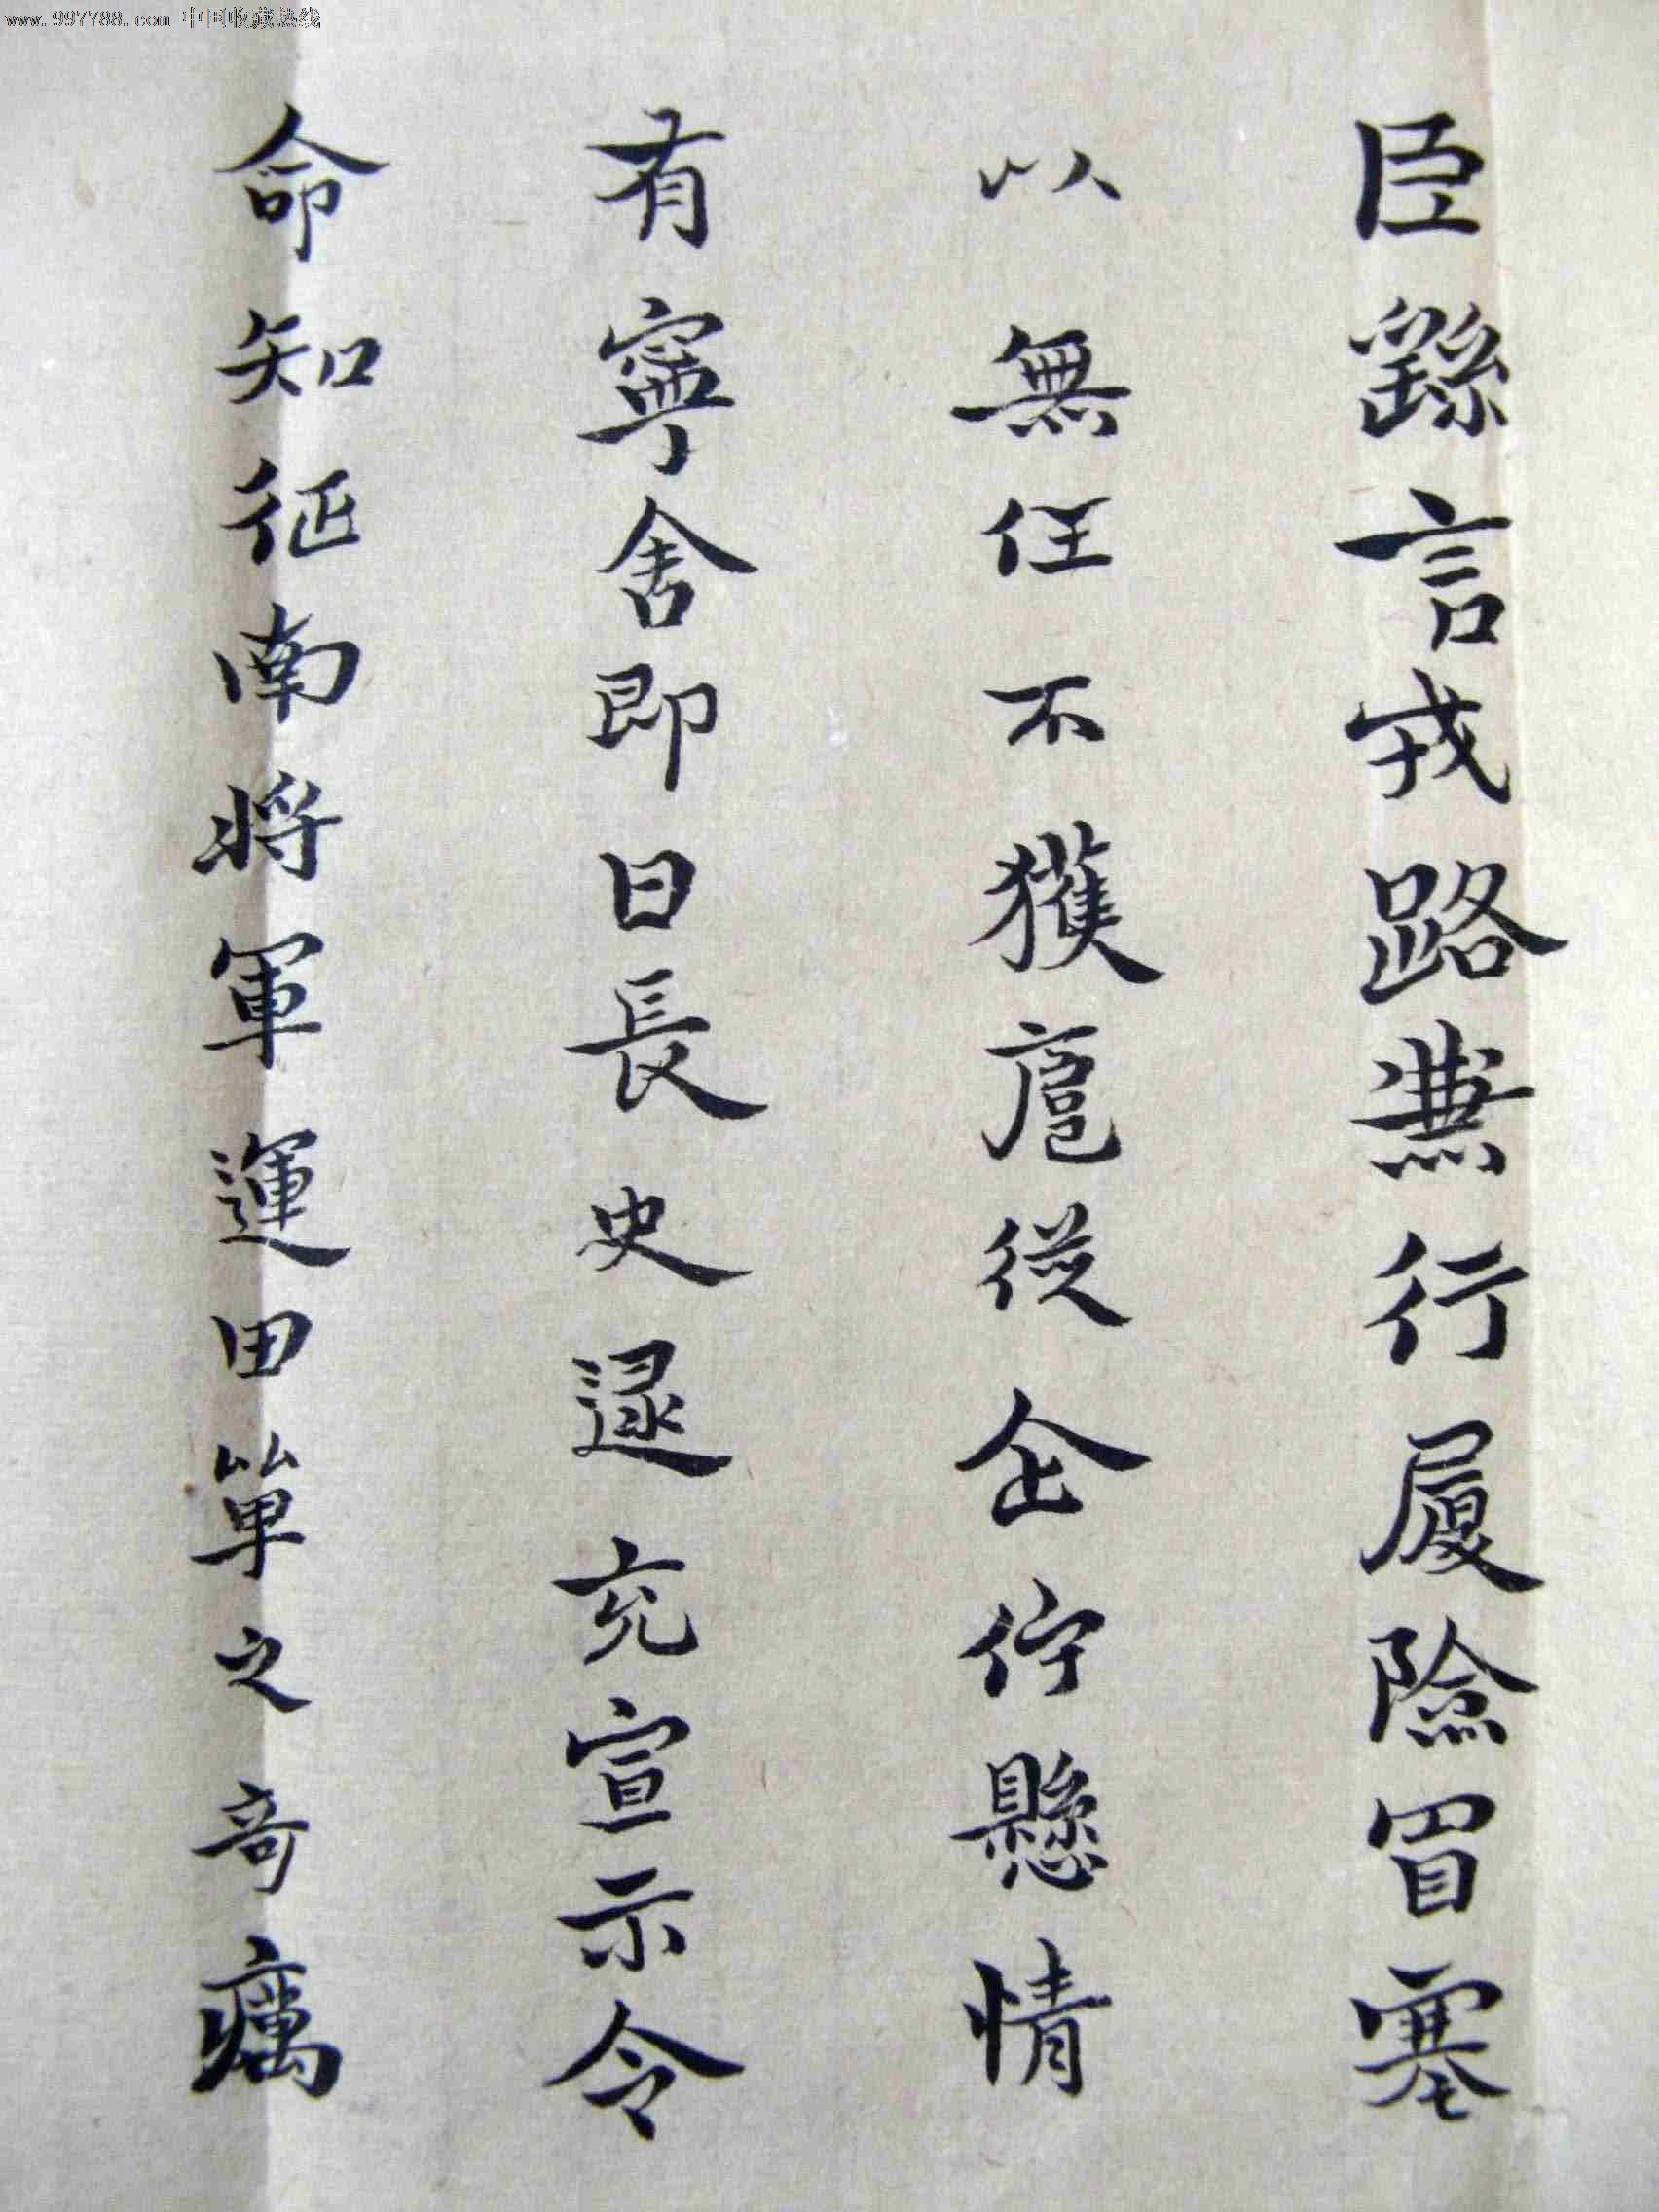 www.997788.com 中国收藏热线
臣繇言戎路兼行履險冒寒
以無任不獲扈從企佇懸情
有寧舍即日長史逯充宣示令
命知征南將軍運田單之奇癘